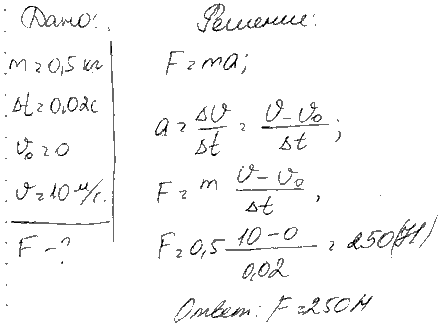 Дано:
m = 0,5 кг
Δt = 0,02с
υ₀ = 0
υ = 10 м/с.
F – ?
Решение:
F = ma;
a = Δυ/Δt = (υ – υ₀)/Δt;
F = m (υ – υ₀)/Δt,
F = 0,5 (10 – 0)/0,02 = 250(Н)
Ответ: F = 250 Н